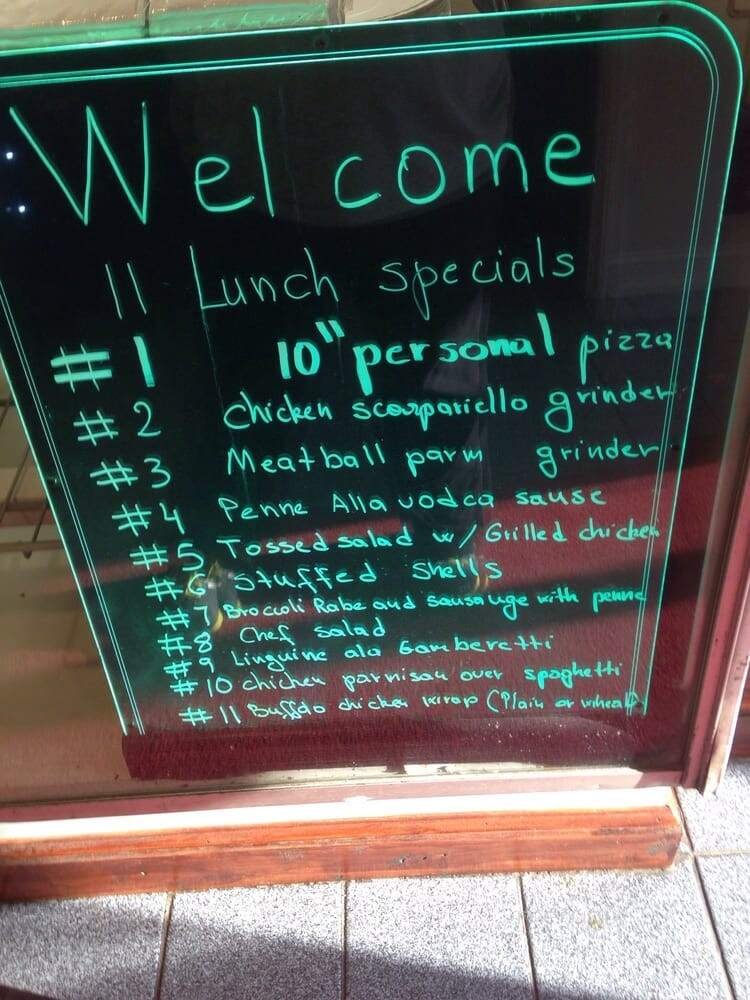 Welcome
11 Lunch specials
#1 10" personal pizza
#2 chicken scarpariello grinder
#3 Meatball parm grinder
#4 Penne Alla vodca sause
#5 Tossed salad w/ Grilled chicken
#6 Stuffed shells
#7 Broccoli Rabe and sausauge with penne
#8 Chef salad
#9 Linguine ala Gamberetti
#10 chicken parmisan over spaghetti
#11 Buffalo chicken wrap (Plain or wheat)